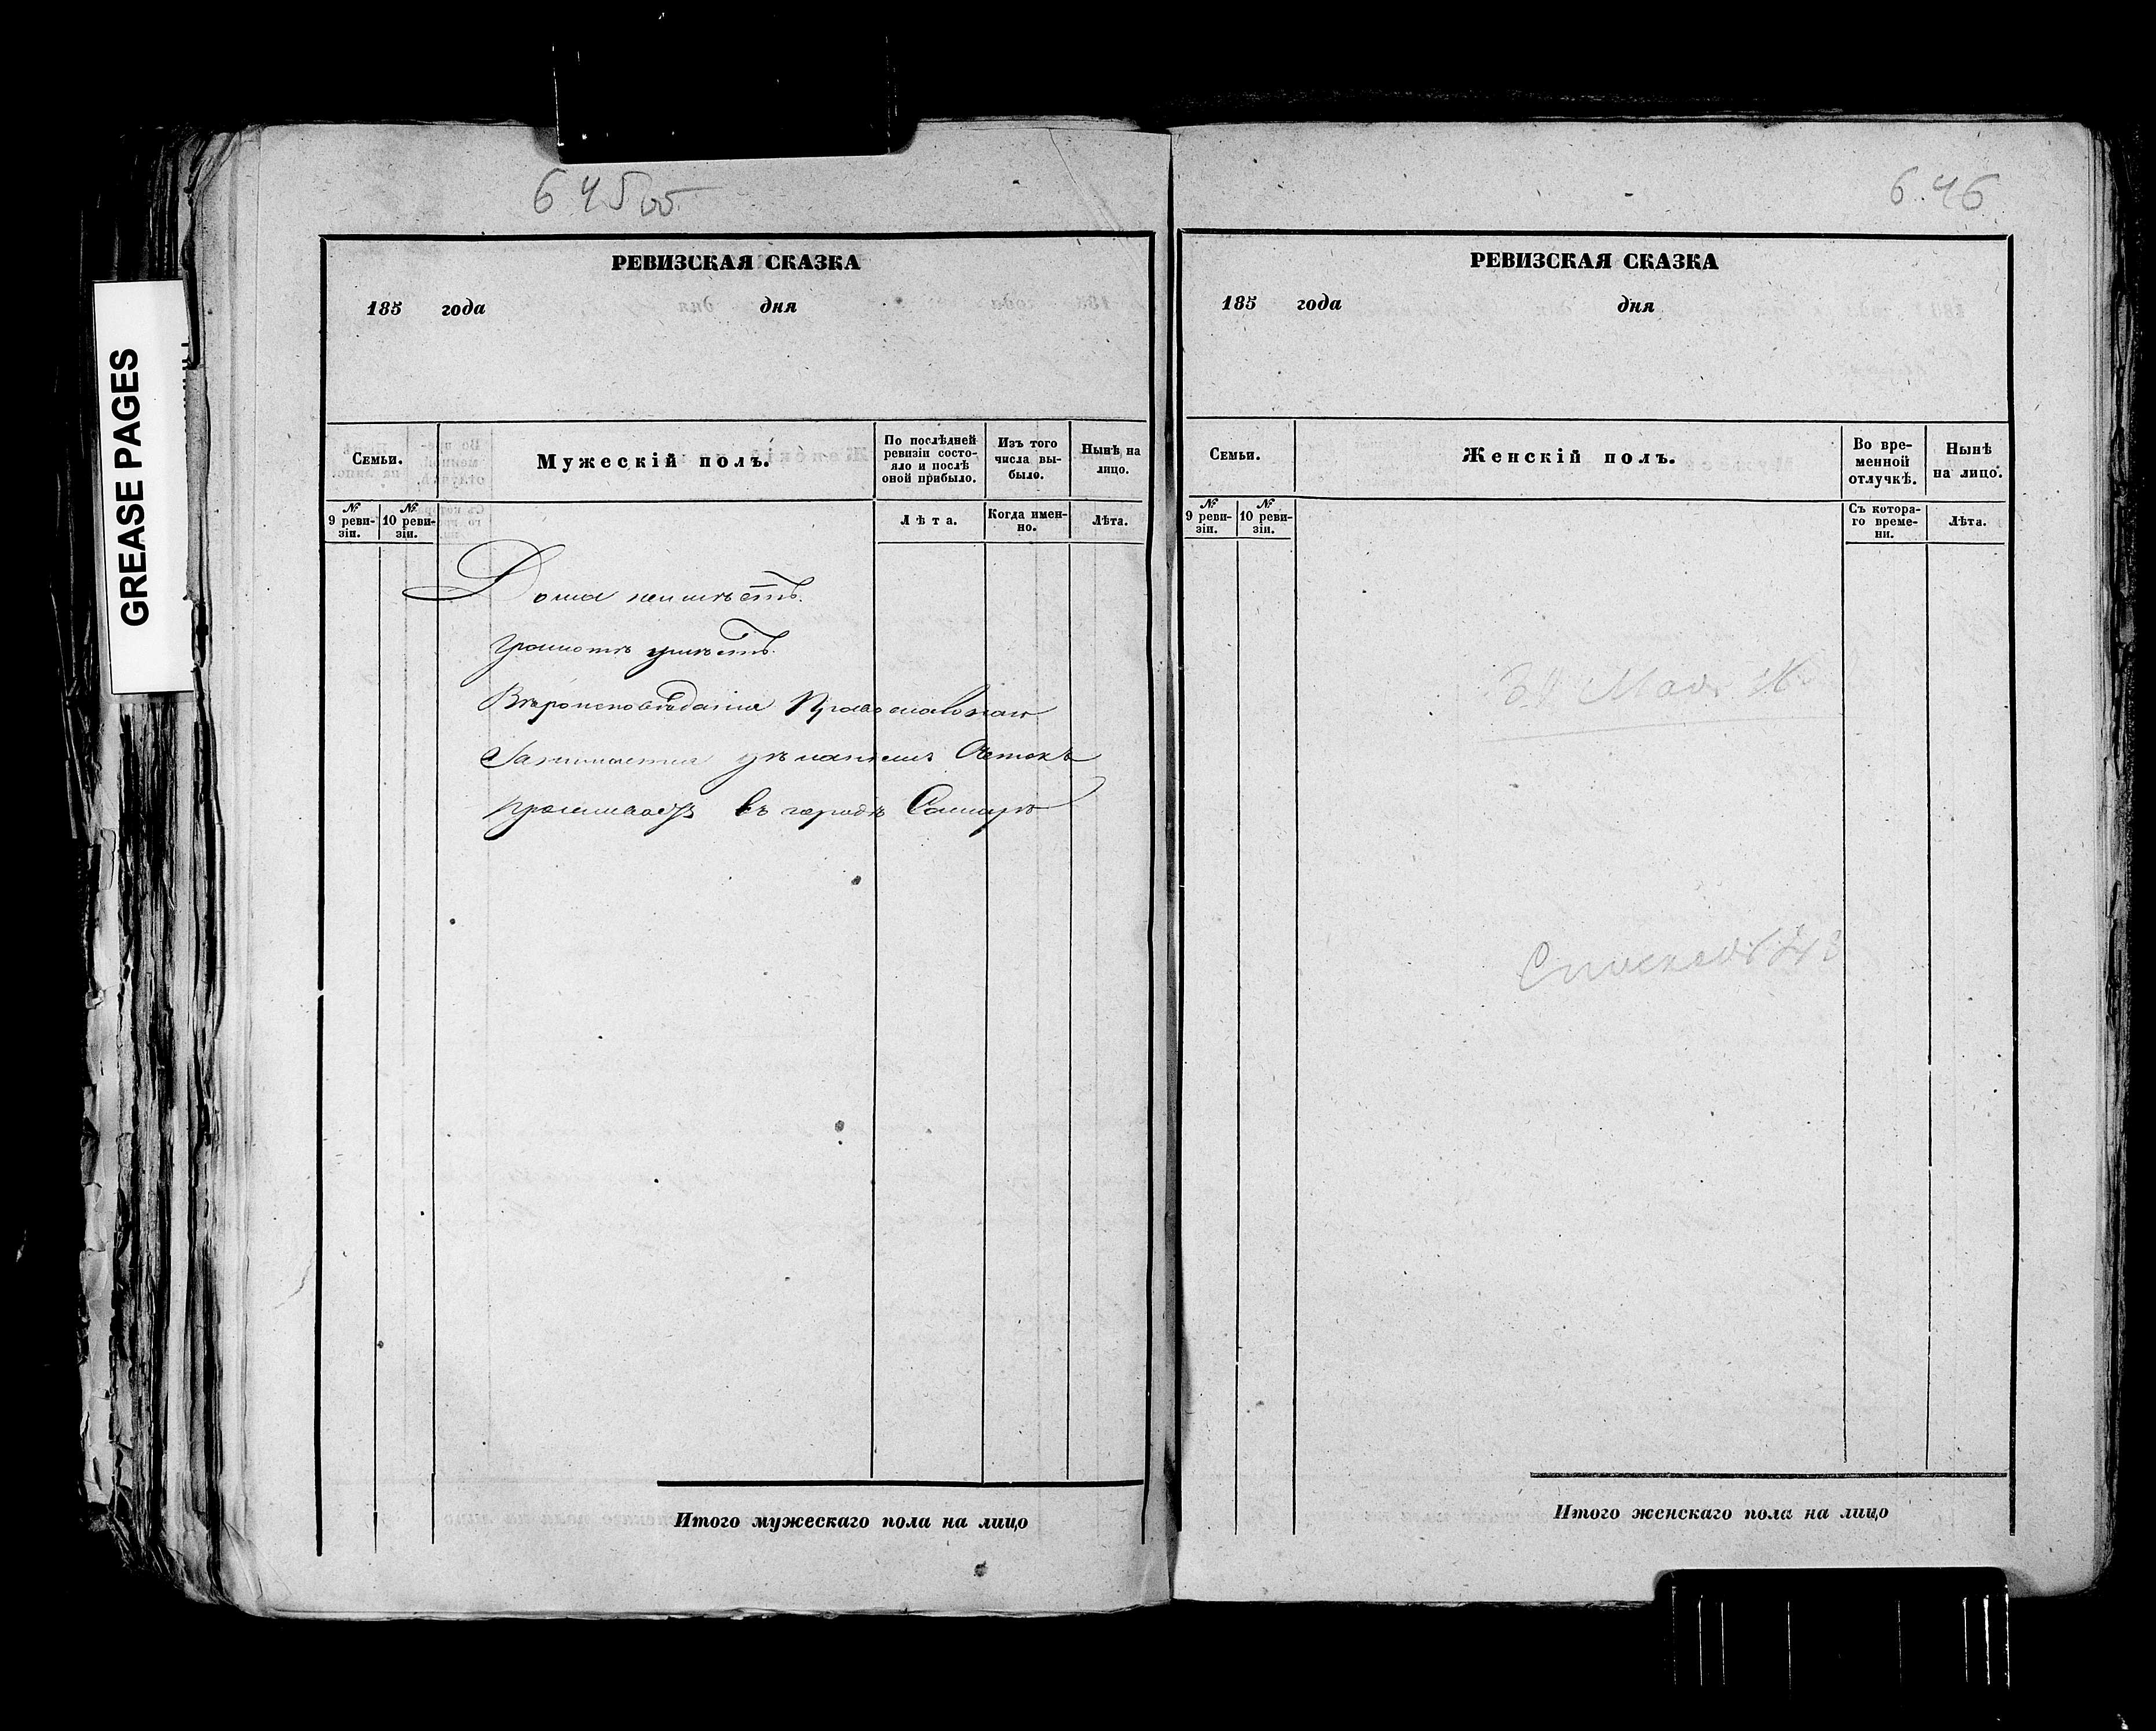 GREASE PAGES
645об
РЕВИЗСКАЯ СКАЗКА
185 года дня
Семьи.
Мужескій полъ.
По послѣдней ревизіи состо-
яло и послѣ
оной прибыло.
Изъ того
числа вы-
было.
Нынѣ на
лицо.
№ 9 реви-
зіи.
№ 10 реви-
зіи.
Лѣта.
Когда имен-
но.
Лѣта.
Дома неимѣетъ.
Грамотѣ умѣетъ.
Вѣроисповѣданія Православнаго
Занимается
проживаетъ въ городѣ Самарѣ
Итого мужескаго пола на лицо
646
РЕВИЗСКАЯ СКАЗКА
185 года дня
Семьи.
Женскій полъ.
Во вре-
менной
отлучкѣ.
Нынѣ
на лицо.
№ 9 реви-
зіи.
№ 10 реви-
зіи.
Съ котора-
го време-
ни.
Лѣта.
Итого женскаго пола на лицо